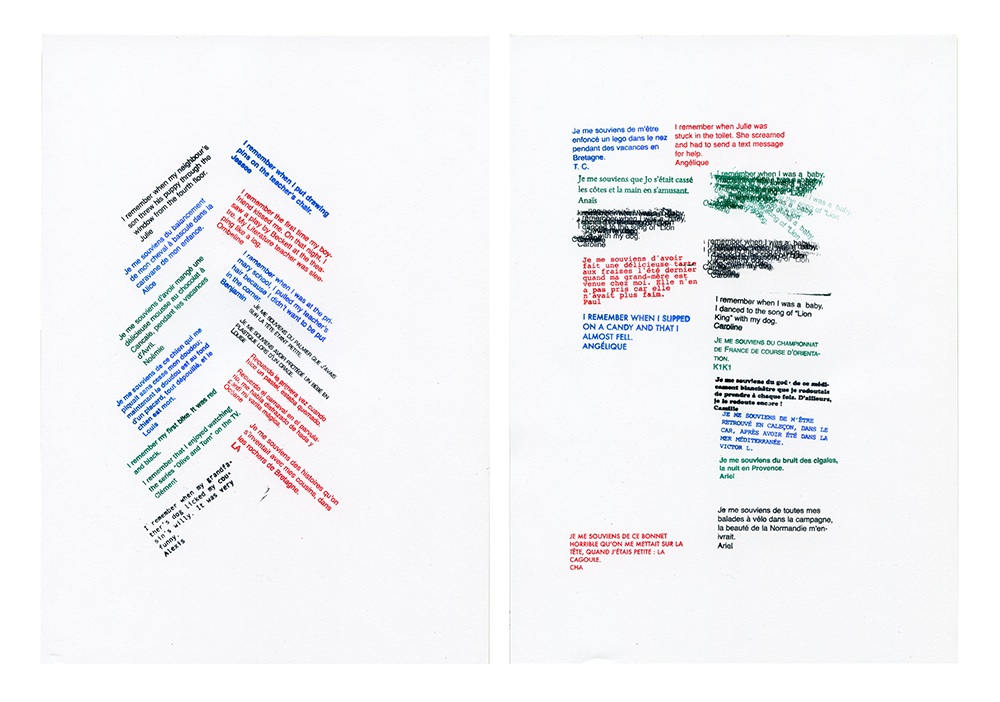 I remember when my neighbour's
son threw his puppy through the
window from the fourth floor.
Julie
Je me souviens du balancement
de mon cheval à bascule dans la
caravane de mon enfance.
Alice
Je me souviens d'avoir mangé une
délicieuse mousse au chocolat à
Cancale, pendant les vacances
d'Avril.
Noémie
Je me souviens de ce chien qui me
piquait sans cesse mon doudou;
maintenant le doudou est au fond
d'un placard, tout dépouillé, et le
chien est mort.
Louis
I remember my first bike. It was red
and black.
I remember that I enjoyed watching
the series "Olive and Tom" on the TV.
Clément
I remember when my grandfa-
ther's dog licked my cou-
sin's willy. It was very
funny.
Alexis
I remember when I put drawing
pins on the teacher's chair.
Jessee
I remember the first time my boy-
friend kissed me. On that night, I
saw a play by Beckett at the thea-
tre. My Literature teacher was slee-
ping like a log.
Ombeline
I remember when I was at the pri-
mary school, I pulled my teacher's
hair because I didn't want to be put
in the corner.
Benjamin
JE ME SOUVIENS DU PALMIER QUE J'AVAIS
SUR LA TÊTE ÉTANT PETITE.
JE ME SOUVIENS AVOIR PROTÉGÉ UN BÉBÉ EN
PLASTIQUE LORS D'UN ORAGE.
LOUISE
Recuerdo la primera vez cuando
hice un pastel, estaba quemado.
Recuerdo el carnaval en el parvula-
rio, me había disfrazado de hada y
perdí mi varita mágica.
Océane
Je me souviens des histoires qu'on
s'inventait avec mes cousins, dans
les rochers de Bretagne.
LA
Je me souviens de m'être
enfoncé un lego dans le nez
pendant des vacances en
Bretagne.
T. C.
I remember when Julie was
stuck in the toilet. She screamed
and had to send a text message
for help.
Angélique
Je me souviens que Jo s'était cassé
les côtes et la main en s'amusant.
Anaïs
remember when I was a baby,
with my dog.
Caroline
I remember when I was a baby,
Caroline
I remember when I was a baby,
with my dog.
Caroline
Je me souviens d'avoir
fait une délicieuse tarte
aux fraises l'été dernier
quand ma grand-mère est
venue chez moi. Elle n'en
a pas pris car elle
n'avait plus faim.
Paul
I REMEMBER WHEN I SLIPPED
ON A CANDY AND THAT I
ALMOST FELL.
ANGÉLIQUE
I remember when I was a baby,
I danced to the song of "Lion
King" with my dog.
Caroline
JE ME SOUVIENS DU CHAMPIONNAT
DE FRANCE DE COURSE D'ORIENTA-
TION.
K1K1
Je me souviens du goût de ce médi-
cament blanchâtre que je redoutais
de prendre à chaque fois. D'ailleurs,
je le redoute encore !
Camille
JE ME SOUVIENS DE M'ÊTRE
RETROUVÉ EN CALEÇON, DANS LE
CAR, APRÈS AVOIR ÉTÉ DANS LA
MER MÉDITERRANÉE.
VICTOR L.
Je me souviens du bruit des cigales,
la nuit en Provence.
Ariel
Je me souviens de toutes mes
balades à vélo dans la campagne,
la beauté de la Normandie m'en-
ivrait.
Ariel
JE ME SOUVIENS DE CE BONNET
HORRIBLE QU'ON ME METTAIT SUR LA
TÊTE, QUAND J'ÉTAIS PETITE : LA
CAGOULE.
CHA